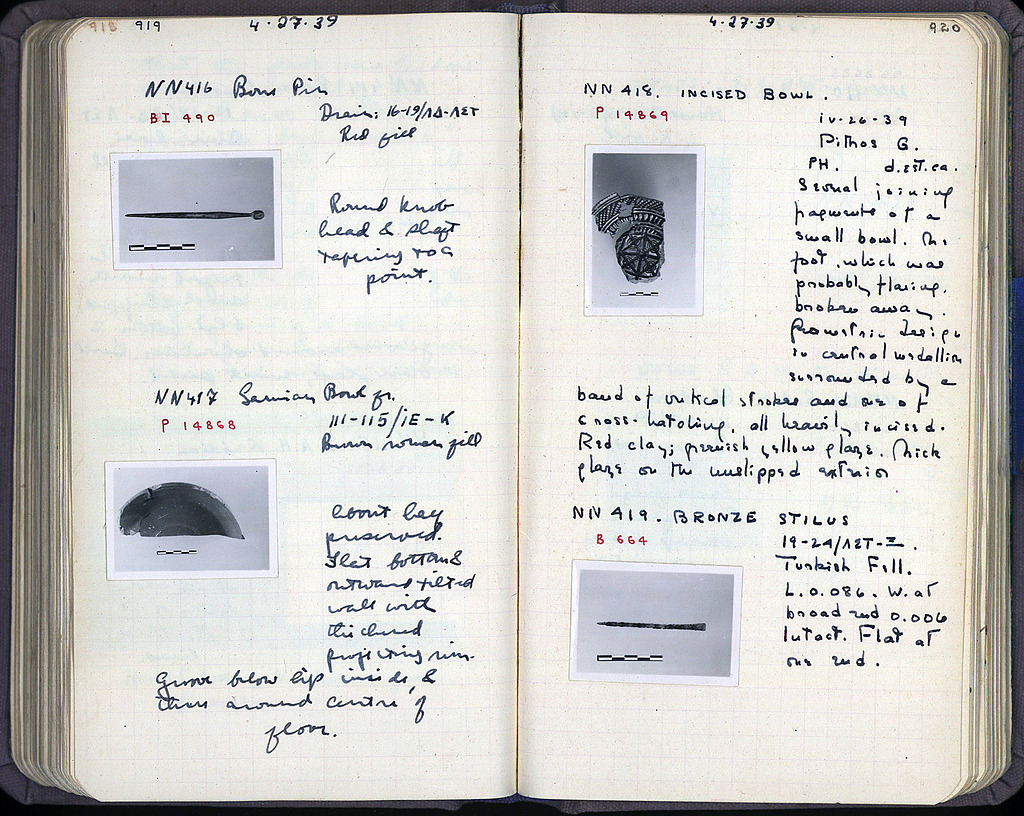 918 919 4-27-39
NN416 Bone Pin
BI 490
Drain: 16-19/ΛΔ-ΛΣΤ
Red fill
Round knob
head & shaft
tapering to a
point.
NN417 Samian Bowl fr.
P 14868
111-115/ΙΕ-Κ
Brown roman fill
About half
preserved.
Flat bottom &
outward tilted
wall with
thickened
projecting rim.
Groove below lip inside, &
around centre of
floor.
4-27-39 920
NN 418. INCISED BOWL.
P 14869
iv-26-39
Pithos G.
PH. d.est.ca.
Several joining
fragments of a
small bowl. The
foot, which was
probably flaring,
broken away.
Geometric design
in central medallion
surrounded by a
band of vertical strokes and one of
cross-hatching, all heavily incised.
Red clay; greenish yellow glaze. Thick
glaze on the unslipped exterior
NN 419. BRONZE STILUS
B 664
19-24/ΛΣΤ-
Turkish Fill.
L. 0.086. W. at
broad end 0.006
Intact. Flat at
one end.